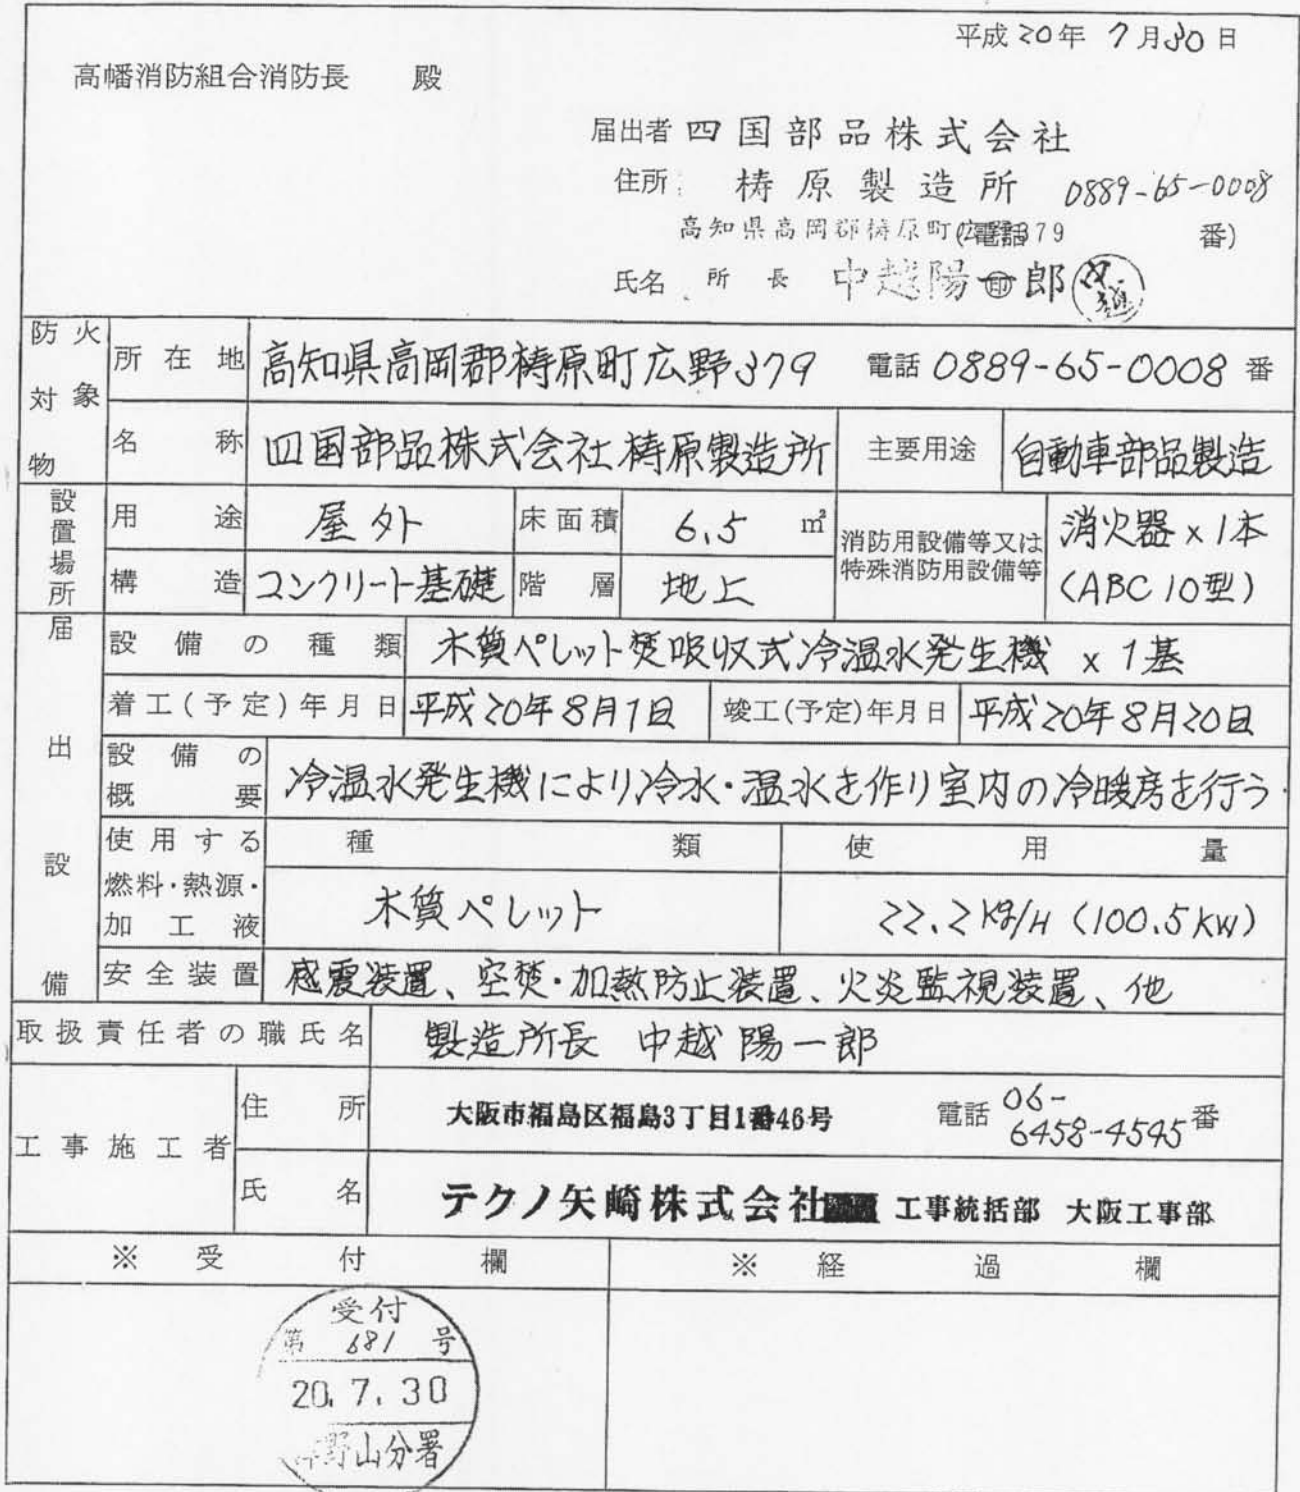 平成20年 7月30日
高幡消防組合消防長 殿
届出者 四国部品株式会社
住所 梼原製造所 0889-65-0008
高知県高岡郡梼原町 (電話379 番)
氏名 所長 中越陽一郎 ㊞
防火対象物
所在地 高知県高岡郡梼原町広野379 電話 0889-65-0008 番
名称 四国部品株式会社梼原製造所 主要用途 自動車部品製造
設置場所
用途 屋外 床面積 6.5 ㎡ 消防用設備等又は特殊消防用設備等 消火器×1本
構造 コンクリート基礎 階層 地上 (ABC10型)
届出設備
設備の種類 木質ペレット焚吸収式冷温水発生機 × 1基
着工(予定)年月日 平成20年8月1日 竣工(予定)年月日 平成20年8月20日
設備の概要 冷温水発生機により冷水・温水を作り室内の冷暖房を行う
使用する燃料・熱源・加工液 種類 使用量
木質ペレット 22.2kg/H (100.5kW)
安全装置 感震装置、空焚・加熱防止装置、火炎監視装置、他
取扱責任者の職氏名 製造所長 中越陽一郎
工事施工者
住所 大阪市福島区福島3丁目1番46号 電話 06-6458-4545番
氏名 テクノ矢崎株式会社 工事統括部 大阪工事部
※受付欄 ※経過欄
受付
第 681 号
20.7.30
野山分署